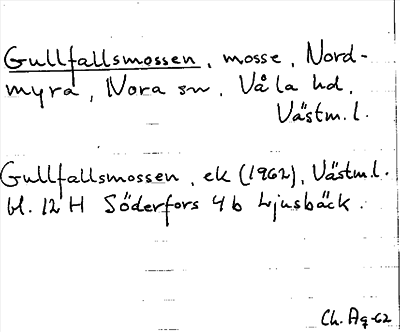 Gullfallsmossen, mosse, Nord-
myra, Nora sn, Våla hd,
Västm. l.
Gullfallsmossen, ek (1962), Västm.l.
bl. 12 H Söderfors 4 b Ljusbäck.
Ch. Ag-62